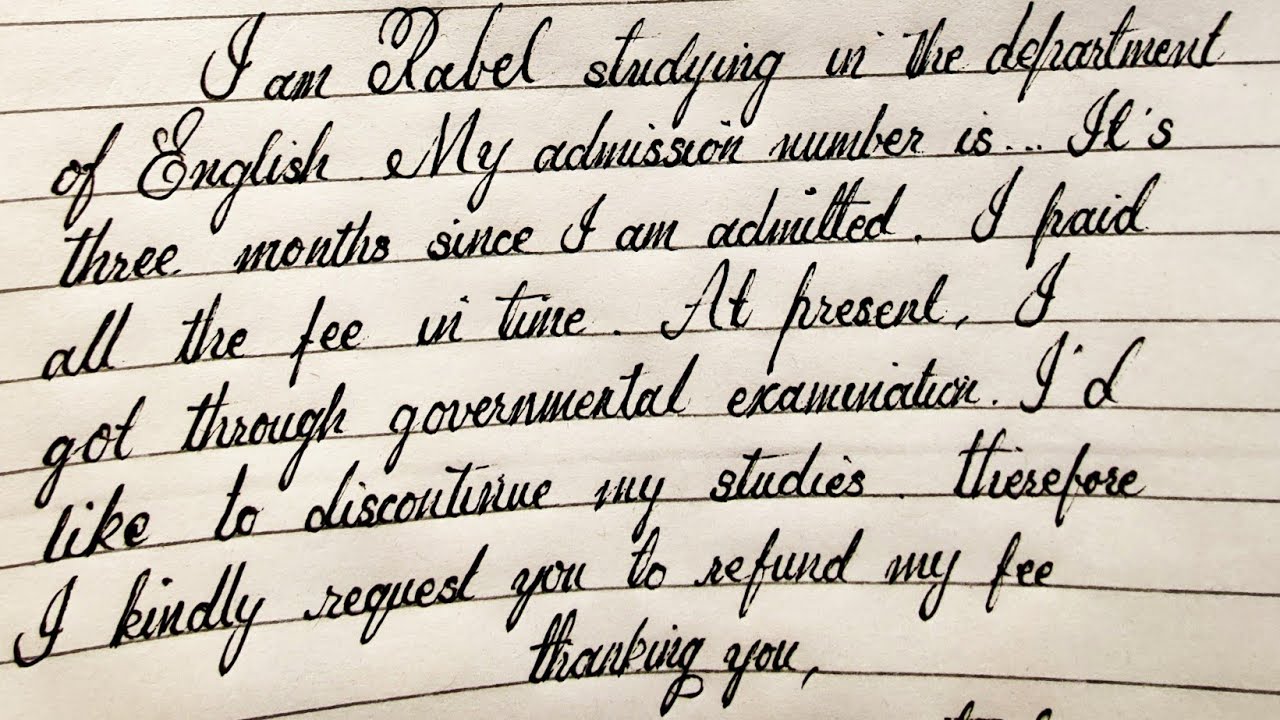 I am Rabel studying in the department
of English. My admission number is... It's
three months since I am admitted. I paid
all the fee in time. At present, I
got through governmental examination. I'd
like to discontinue my studies. therefore
I kindly request you to refund my fee
thanking you,